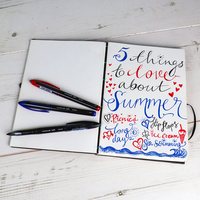 5 things
to love
about
Summer
Picnics
flipflops
long
day
ice cream
Sea Swimming